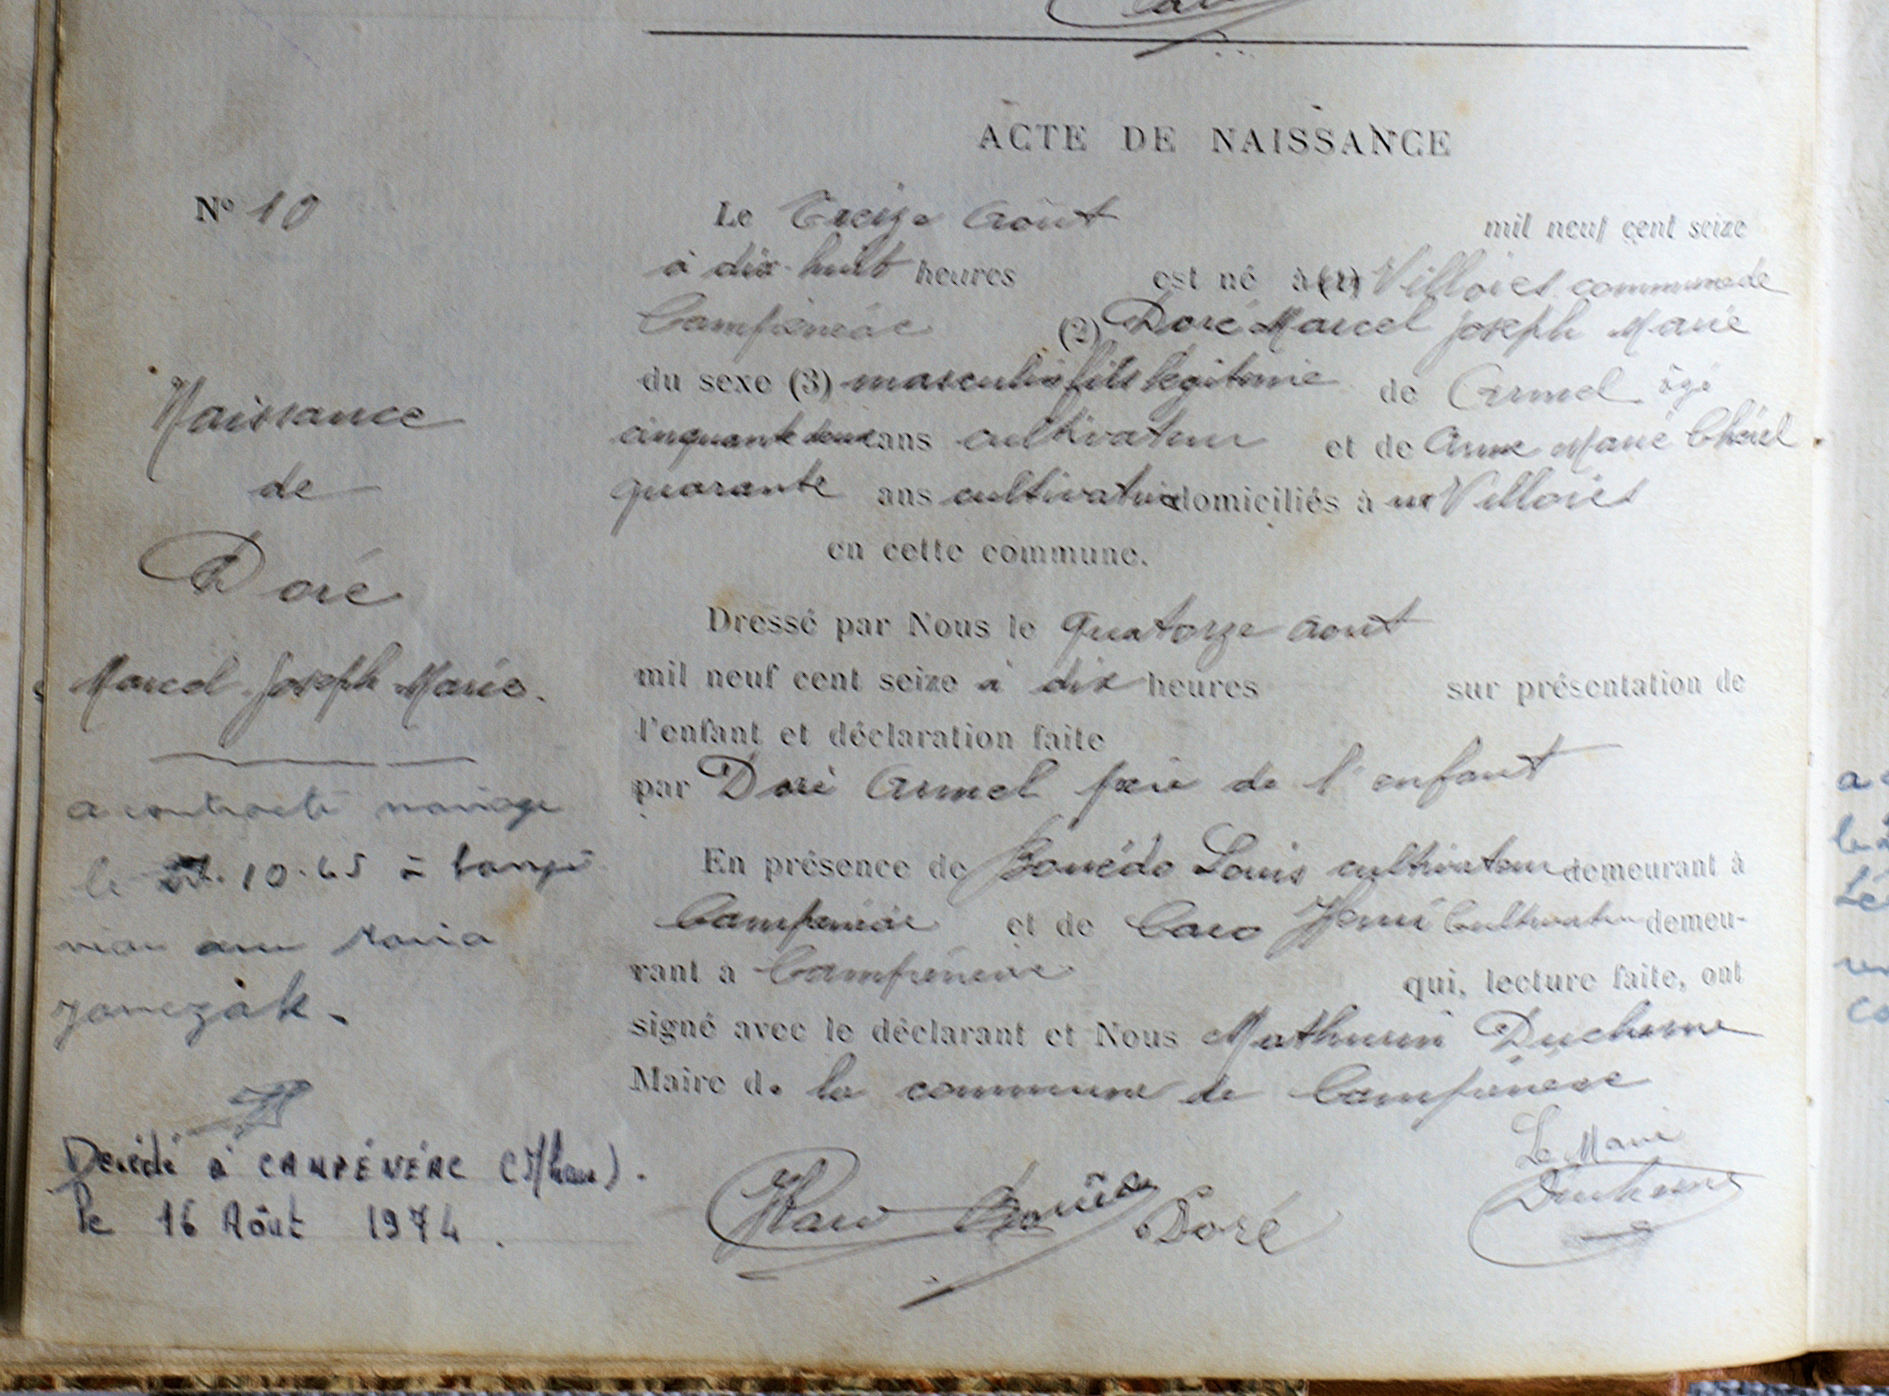 ACTE DE NAISSANCE
N° 10
Le Treize Août mil neuf cent seize
à dix-huit heures est né à (1) Villoies commune de
Campénéac (2) Doré Marcel Joseph Marie
du sexe (3) masculin fils légitime de Armel âgé
cinquante deux ans cultivateur et de Anne Marie Chérel
quarante ans cultivatrice domiciliés à Villoies
en cette commune.
Dressé par Nous le quatorze août
mil neuf cent seize à dix heures sur présentation de
l'enfant et déclaration faite
par Doré Armel père de l'enfant
En présence de Bouëdo Louis cultivateur demeurant à
Campénéac et de Caro Henri Cultivateur demeu-
rant à Campénéac qui, lecture faite, ont
signé avec le déclarant et Nous Mathurin Duchesne
Maire de la commune de Campénéac
Le Maire
HCaro Bouëdo Doré Duchesne
Naissance
de
Doré
Marcel Joseph Marie.
a contracté mariage
le 10.65 à Campé
néac avec Maria
Janczak.
Décédé à CAMPÉNÉAC (Mban).
le 16 Août 1974.